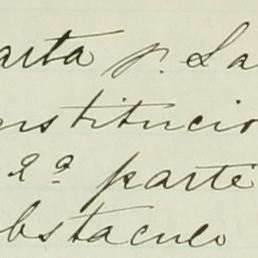 arta p. La
nstitucio
2ª parte
bstaculo